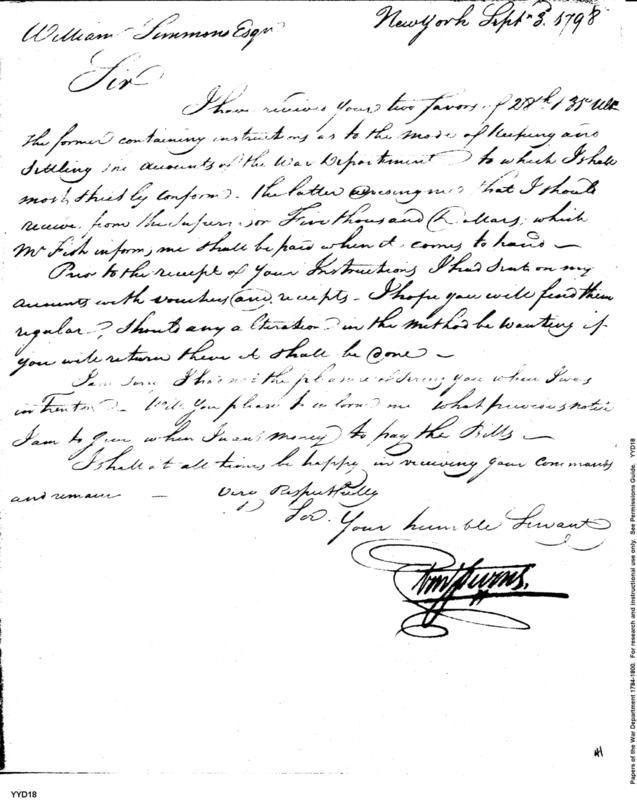 William Simmons Esqr
New York Septr 3. 1798
Sir
I have received your two favors of 28th & 31st Ult
the former containing instructions as to the mode of keeping and
settling the accounts of the War Department to which I shall
most strictly conform. The latter advising me that I should
receive from the Supervisor Five thousand Dollars, which
Mr Fish informs me shall be paid when it comes to hand —
Prior to the receipt of your Instructions I had sent on my
accounts with vouchers and receipts — I hope you will find them
regular, should any alteration in the method be wanting if
you will return them it shall be done —
I am sorry I had not the pleasure of seeing you when I was
in Trenton — Will you please to inform me what previous notice
I am to give when I want money to pay the Bills —
I shall at all times be happy in receiving your commands
and remain — Very Respectfully
Sir Your humble Servant
Papers of the War Department 1784-1800. For research and instructional use only. See Permissions Guide. YYD18
YYD18